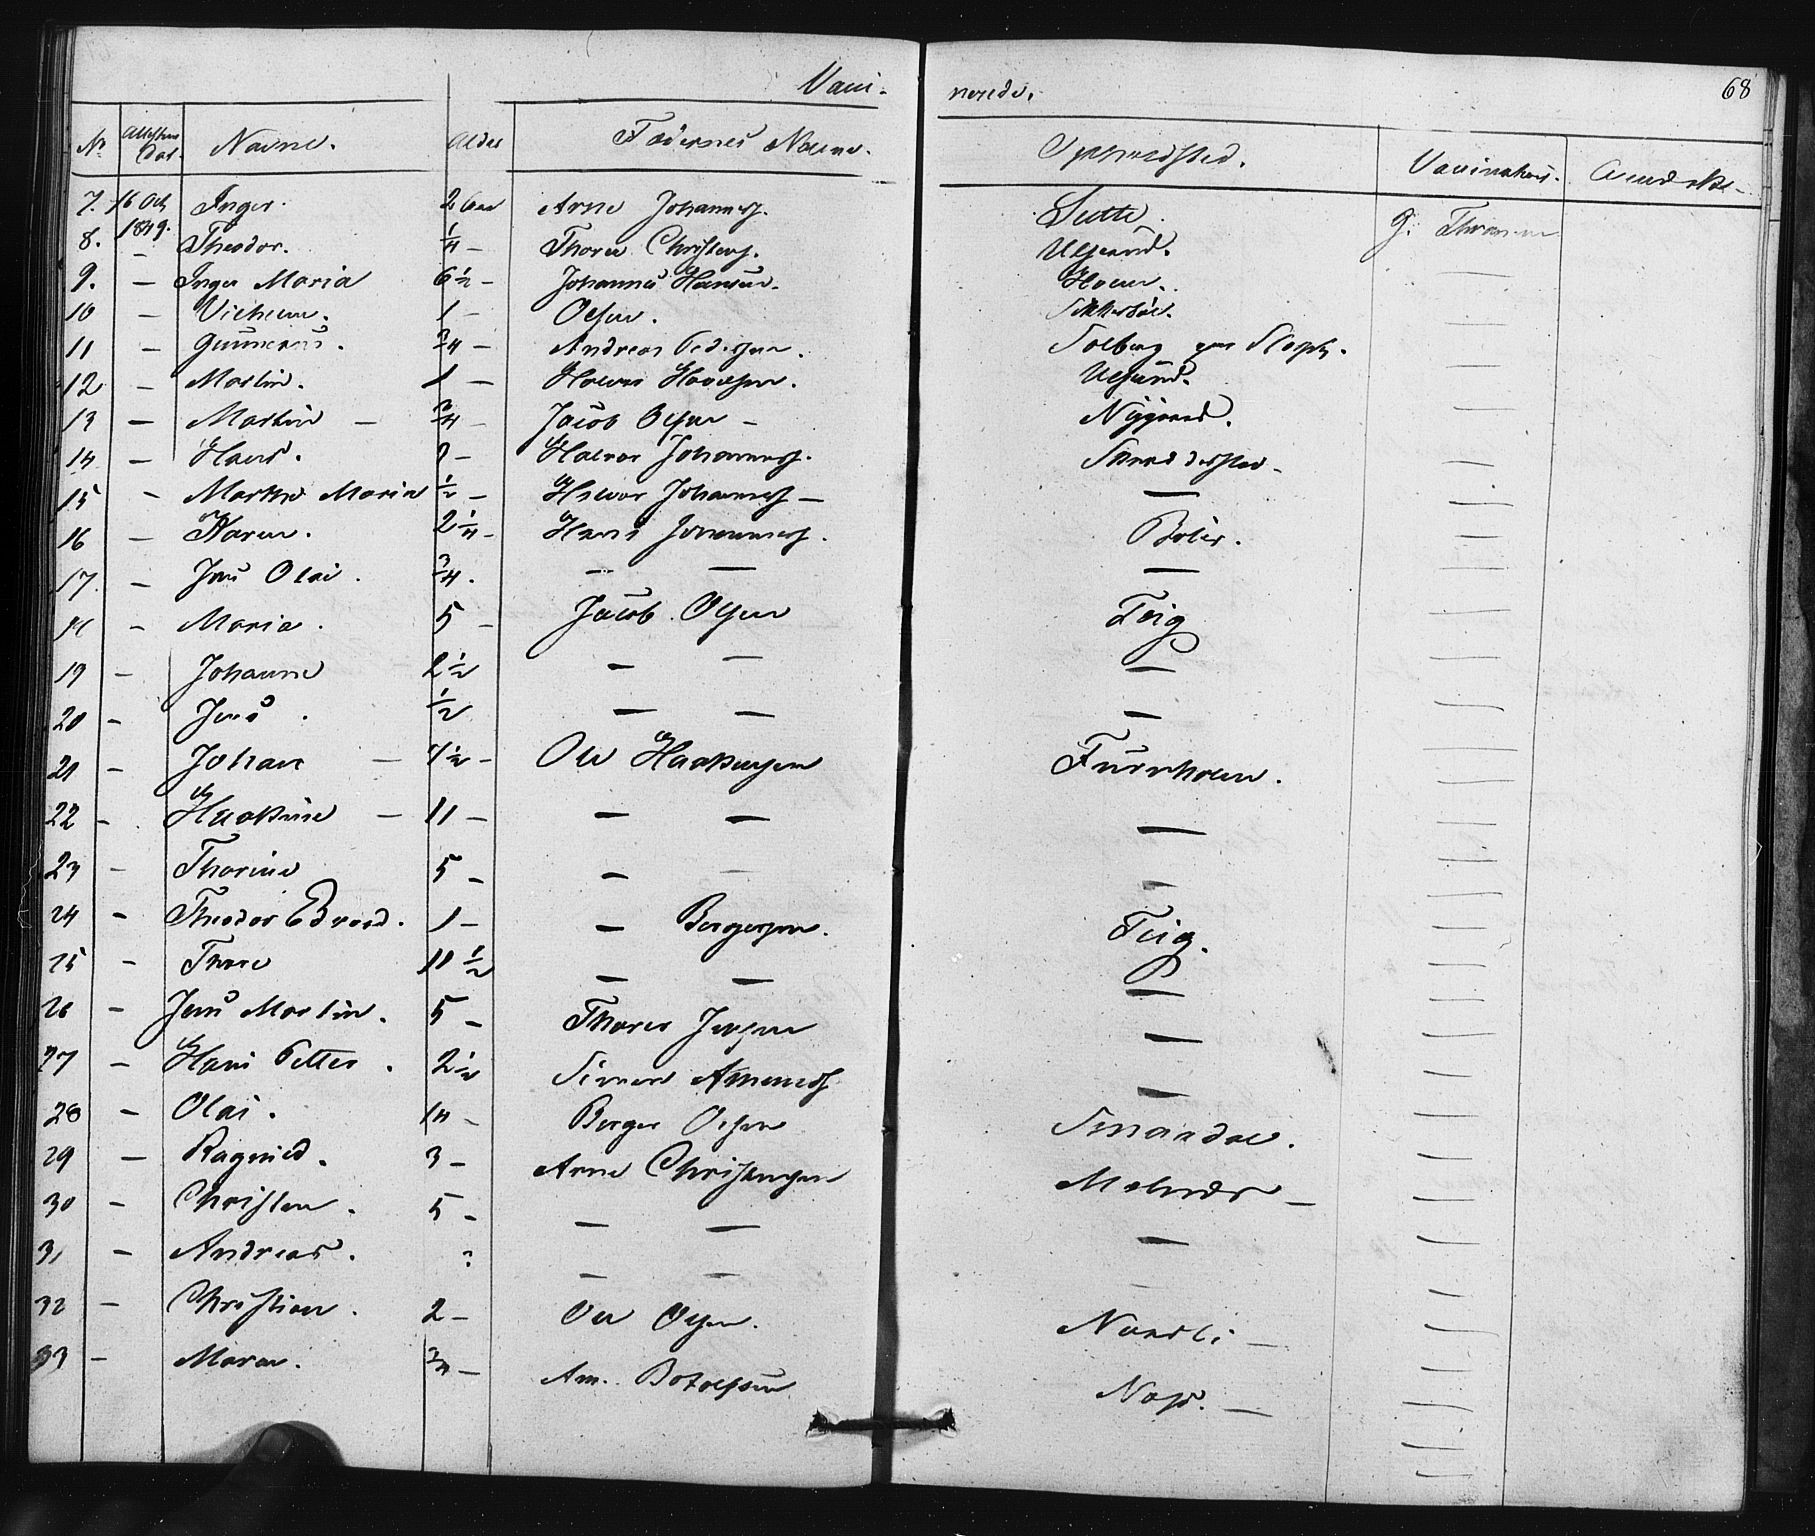 Vacci- nerede. 68
No Attestens Dat. Navne. Alder Fædrenes Navne. Opholdsted. Vaccinateur. Anmærkn.
7. 16 Oct 1849. Inger. 2 Aar Arne Johannesf. Sætte. J. Thronsen
8. — Theodor. 1/4 — Thorer Christens. Ulsrund. —
9. — Inger Maria 6 1/2 — Johannes Hansen. —
10 — Vilhelm. 1 — Olsen. —
11 — Gunnerus. 3/4 — Andreas Pedersen. Solberg —
12 — Martin. 1 — Halvor —
13 — Martin — 3/4 — Jacob Olsen — Nÿgaard. —
14 — Hans. — Halvor Johannesf. —
15 — Marthe Maria 1/2 — Halvor Johannesf — — —
16 — Karen. 2 1/4 — Hans Johannesf. Bøler. —
17. — Jens Olai. 3/4. — — — —
18 — Maria. 5 — Jacob Olsen Teig —
19 — Johanne 2 1/2 — — — —
20 — Jens. 1/2 — — — —
21 — Johan — 7 1/2 — Ole Haakensen Furuholen. —
22 — Haakine — 11 — — — — —
23 — Thorine 5 — — — — —
24 — Theodor Edvard. 1 — — Bergersen. Teig. —
25 — Thore 11 1/2 — — — —
26 — Jens Martin. 5 — Thorer Jensen — —
27 — Hans Petter. 2 1/2 Simen Amundsf — —
28 — Olai. 14 — Berger Olsen Smaadal. —
29 — Ragnild. 3 — Arne Christensen Melnæs — —
30 — Christen. 5 — — — — —
31 — Andreas. — — — —
32 — Christian. 2 — Ole Olsen. Nordli — —
33 — Maren. 3/4 — Am. Botolfsen Næs. — —